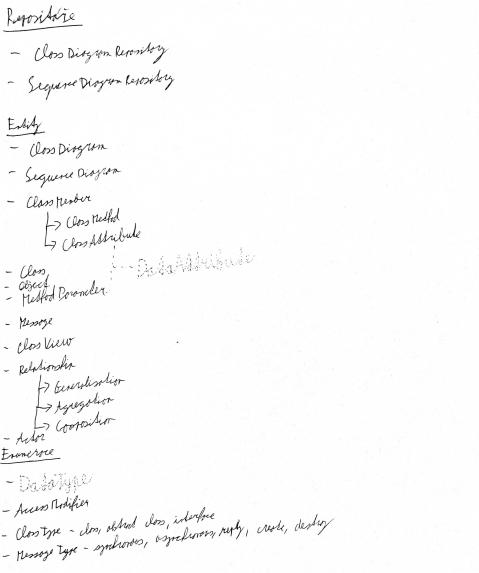 Repositáře
- ClassDiagramRepository
- SequenceDiagramRepository
Entity
- ClassDiagram
- SequenceDiagram
- ClassMember
→ ClassMethod
→ ClassAttribute
DataAttribute
- Class
- Object
- MethodParameter
- Message
- ClassView
- Relationship
→ Generalisation
→ Agregation
→ Composition
- Actor
Enumerace
- DataType
- AccessModifier
- ClassType - class, abstract class, interface
- MessageType - synchronous, asynchronous, reply, create, destroy